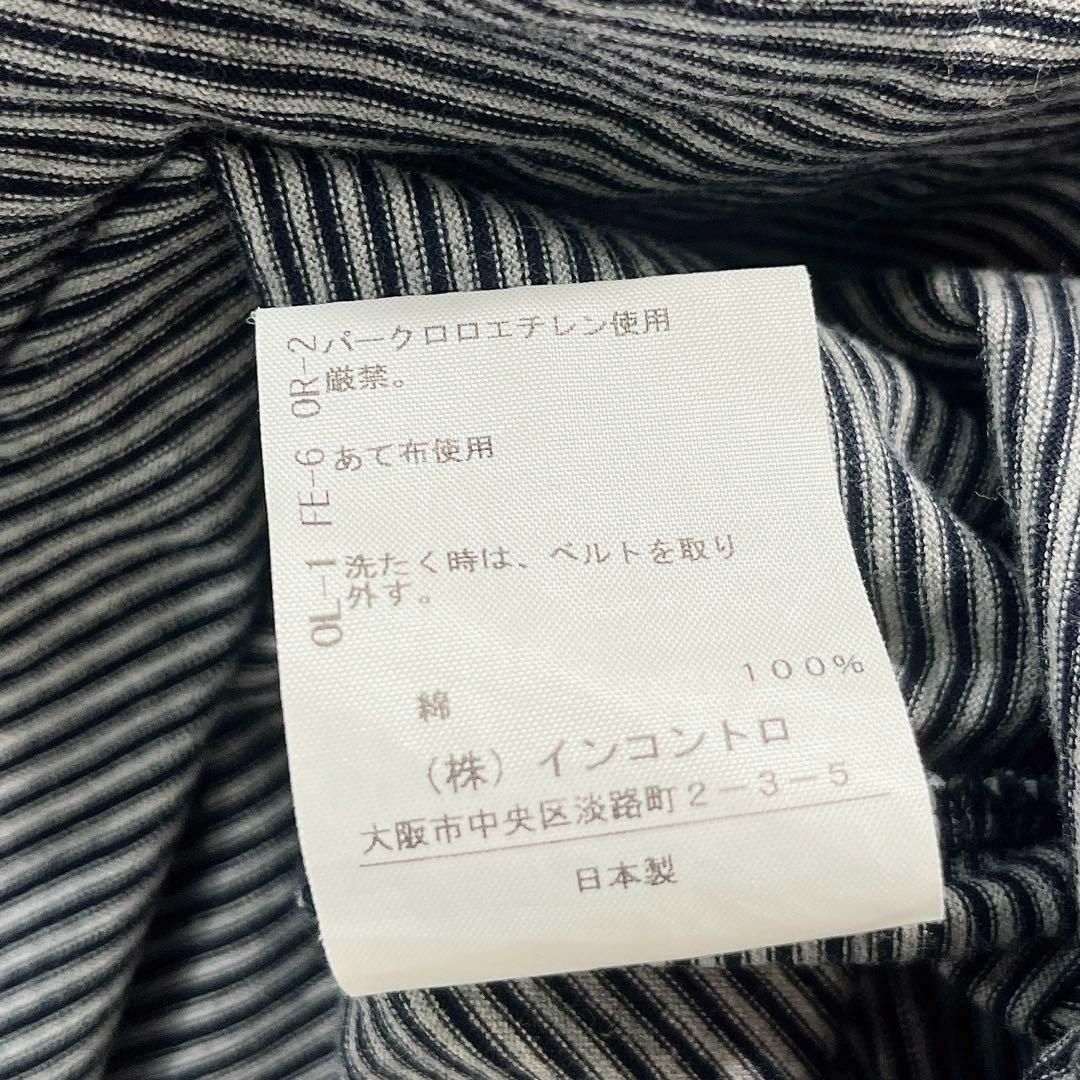 OR-2 パークロロエチレン使用
厳禁。
FE-6 あて布使用
OL-1 洗たく時は、ベルトを取り
外す。
綿 100%
(株)インコントロ
大阪市中央区淡路町2-3-5
日本製